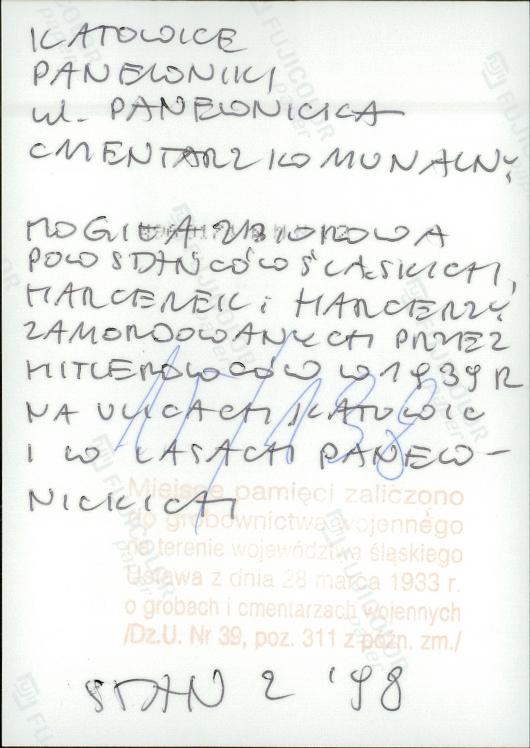 KATOWICE
PANEWNIKI
ul. PANEWNICKA
CMENTARZ KOMUNALNY
MOGIŁA ZBIOROWA
POWSTAŃCÓW ŚLĄSKICH,
HARCEREK i HARCERZY
ZAMORDOWANYCH PRZEZ
HITLEROWCÓW W 1939 R
NA ULICACH KATOWIC
I W LASACH PANEW-
NICKICH
11/138
Miejsce pamięci zaliczono
do grobownictwa wojennego
na terenie województwa śląskiego
Ustawa z dnia 28 marca 1933 r.
o grobach i cmentarzach wojennych
/Dz.U. Nr 39, poz. 311 z późn. zm./
STAN Z '98
FUJICOLOR
paper